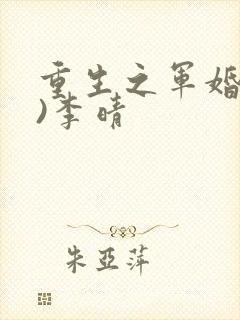 重生之军婚
)李晴
朱亚萍